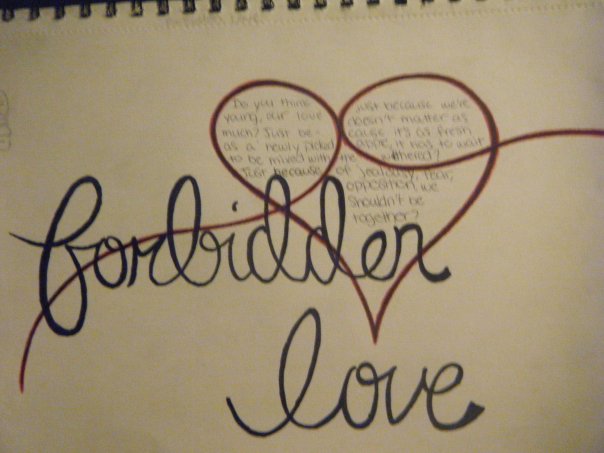 Do you think just because we're
young, our love doesn't matter as
much? Just be- cause it's as fresh
as a newly picked apple, it has to wait
to be mixed with the withered?
Just because of jealousy, fear,
opposition, we
shouldn't be
together?
forbidden
love